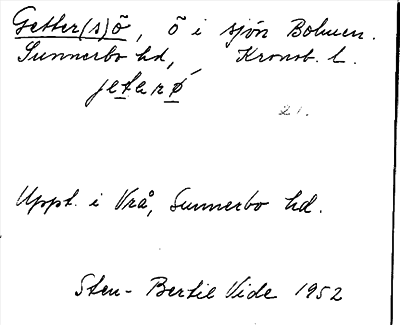 Getter(s)ö, ö i sjön Bolmen.
Sunnerbo hd, Kronob. l.
jetarǿ
21.
Uppt. i Vrå, Sunnerbo hd.
Sten-Bertil Vide 1952